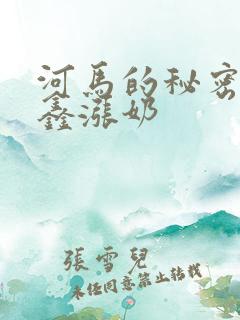 河馬的秘密
鑫漲奶
張雪兒
未經同意禁止轉載